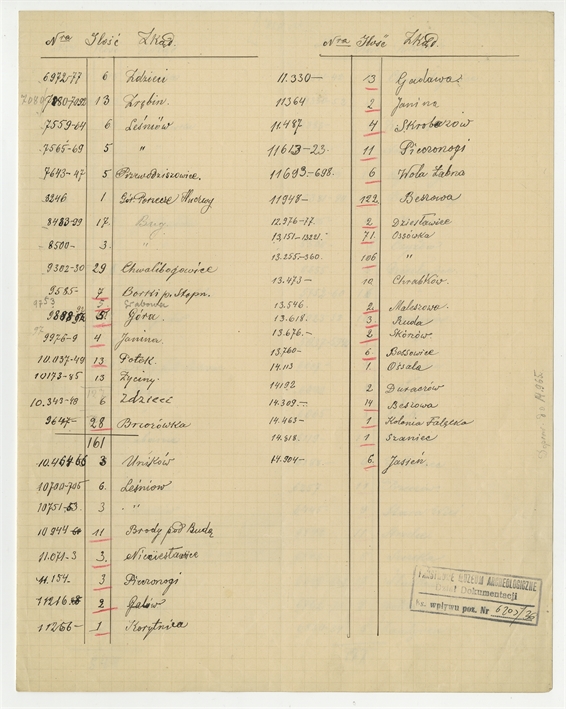 Nra Ilość Zkąd.
6972-77 6 Zdzieci
13 Zrębin.
7559-64 6 Leśniów
7565-69 5 "
7643-47 5 Przewodziszowice.
3246 1
8483-99 17.
8500- 3. "
9302-30 29 Chwalibogowice
9585- 7 Borki p. Stopn.
5. Grabonda
5. Góra.
9976-9 4 Janina.
10.037-49 13 Potok.
10173-85 13 Życiny.
10.343-48 6 Zdzieci
9647- 28 Brzozówka
161
10.464-66 3 Uników
10700-705 6. Leśniow
10751-53. 3 . "
10944- 11 Brody pod Budą
11.071-3 3. Nieciesławice
11.154. 3 Pieczonogi
11216 2 Galów
11266- 1 Korytnica
Nra Ilość Zkąd.
11.330- 13 Gadawa
11364 2 Janina
11.487 4 Skrobaczów
11613-23. 11 Pieczonogi
11693-698. 6 Wola Żabna
11948- 122 Beszowa
12.976-77. 2 Dziesławice
71. Ossówka
13.255-360. 106 "
13.473- 10 Chrabków.
13.546. 2. Maleszowa.
13.618. 3. Ruda
13.676.- 2 Skórzów
13.760- 6. Bossowice
14.113 1 Ossala
14192 2 Duraczów
14.309.- 14 Beszowa
14.463- 1 Kolonia Falęcka
14.818. 1 Szaniec
14.904- 6. Jasień.
PAŃSTWOWE MUZEUM ARCHEOLOGICZNE
Dział Dokumentacji
Nr. wpływu poz. Nr 6203/36